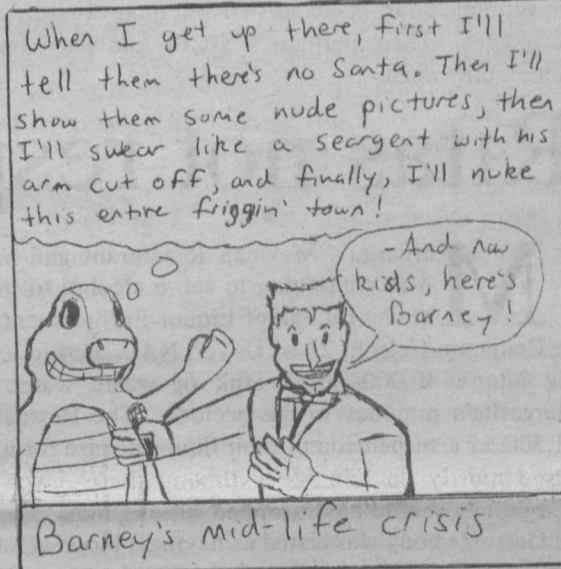 When I get up there, first I'll
tell them there's no Santa. Then I'll
show them some nude pictures, then
I'll swear like a seargent with his
arm cut off, and finally, I'll nuke
this entire friggin' town!
-And now
kids, here's
Barney!
Barney's mid-life crisis